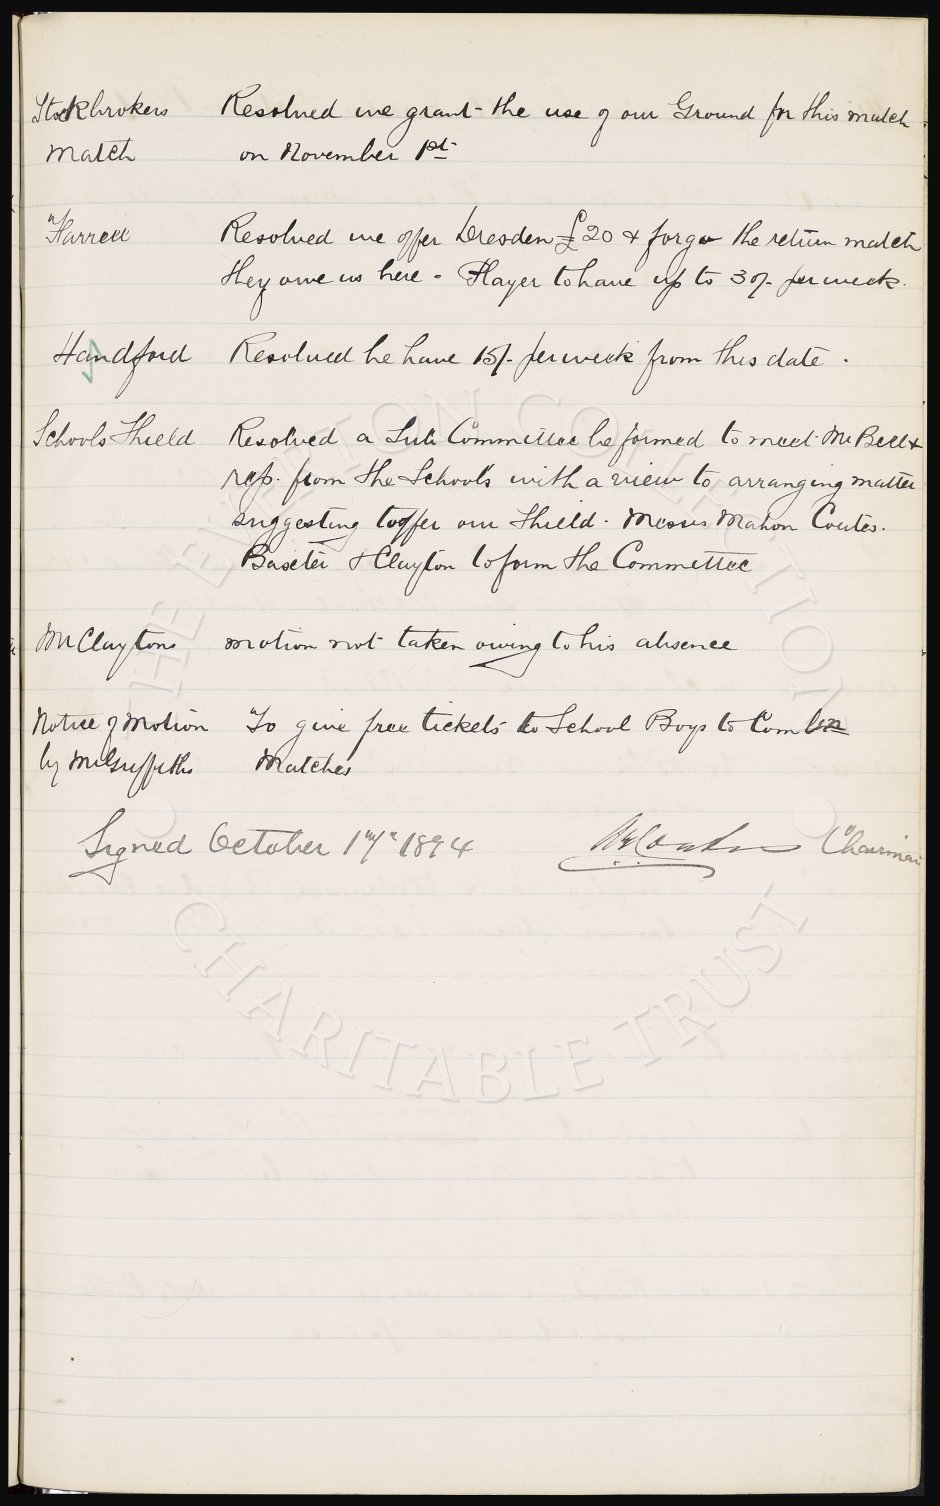 Stockbrokers Resolved we grant the use of our Ground for this match
Match on November 1st
Farrell Resolved we offer Dresden £20 & forgo the return match
they owe us here - Player to have up to 30/- per week.
Handford Resolved he have 15/- per week from this date.
Schools Shield Resolved a Sub Committee be formed to meet Mr Bell &
rep. from the Schools with a view to arranging matter
suggesting to offer our Shield. Messrs Mahon Coates.
Baxter & Clayton to form the Committee
Mr Claytons motion not taken owing to his absence
Notice of Motion "To give free tickets to School Boys to Combn
by Mr Griffiths Matches
Signed October 1894 Chairman
THE EVERTON COLLECTION
CHARITABLE TRUST